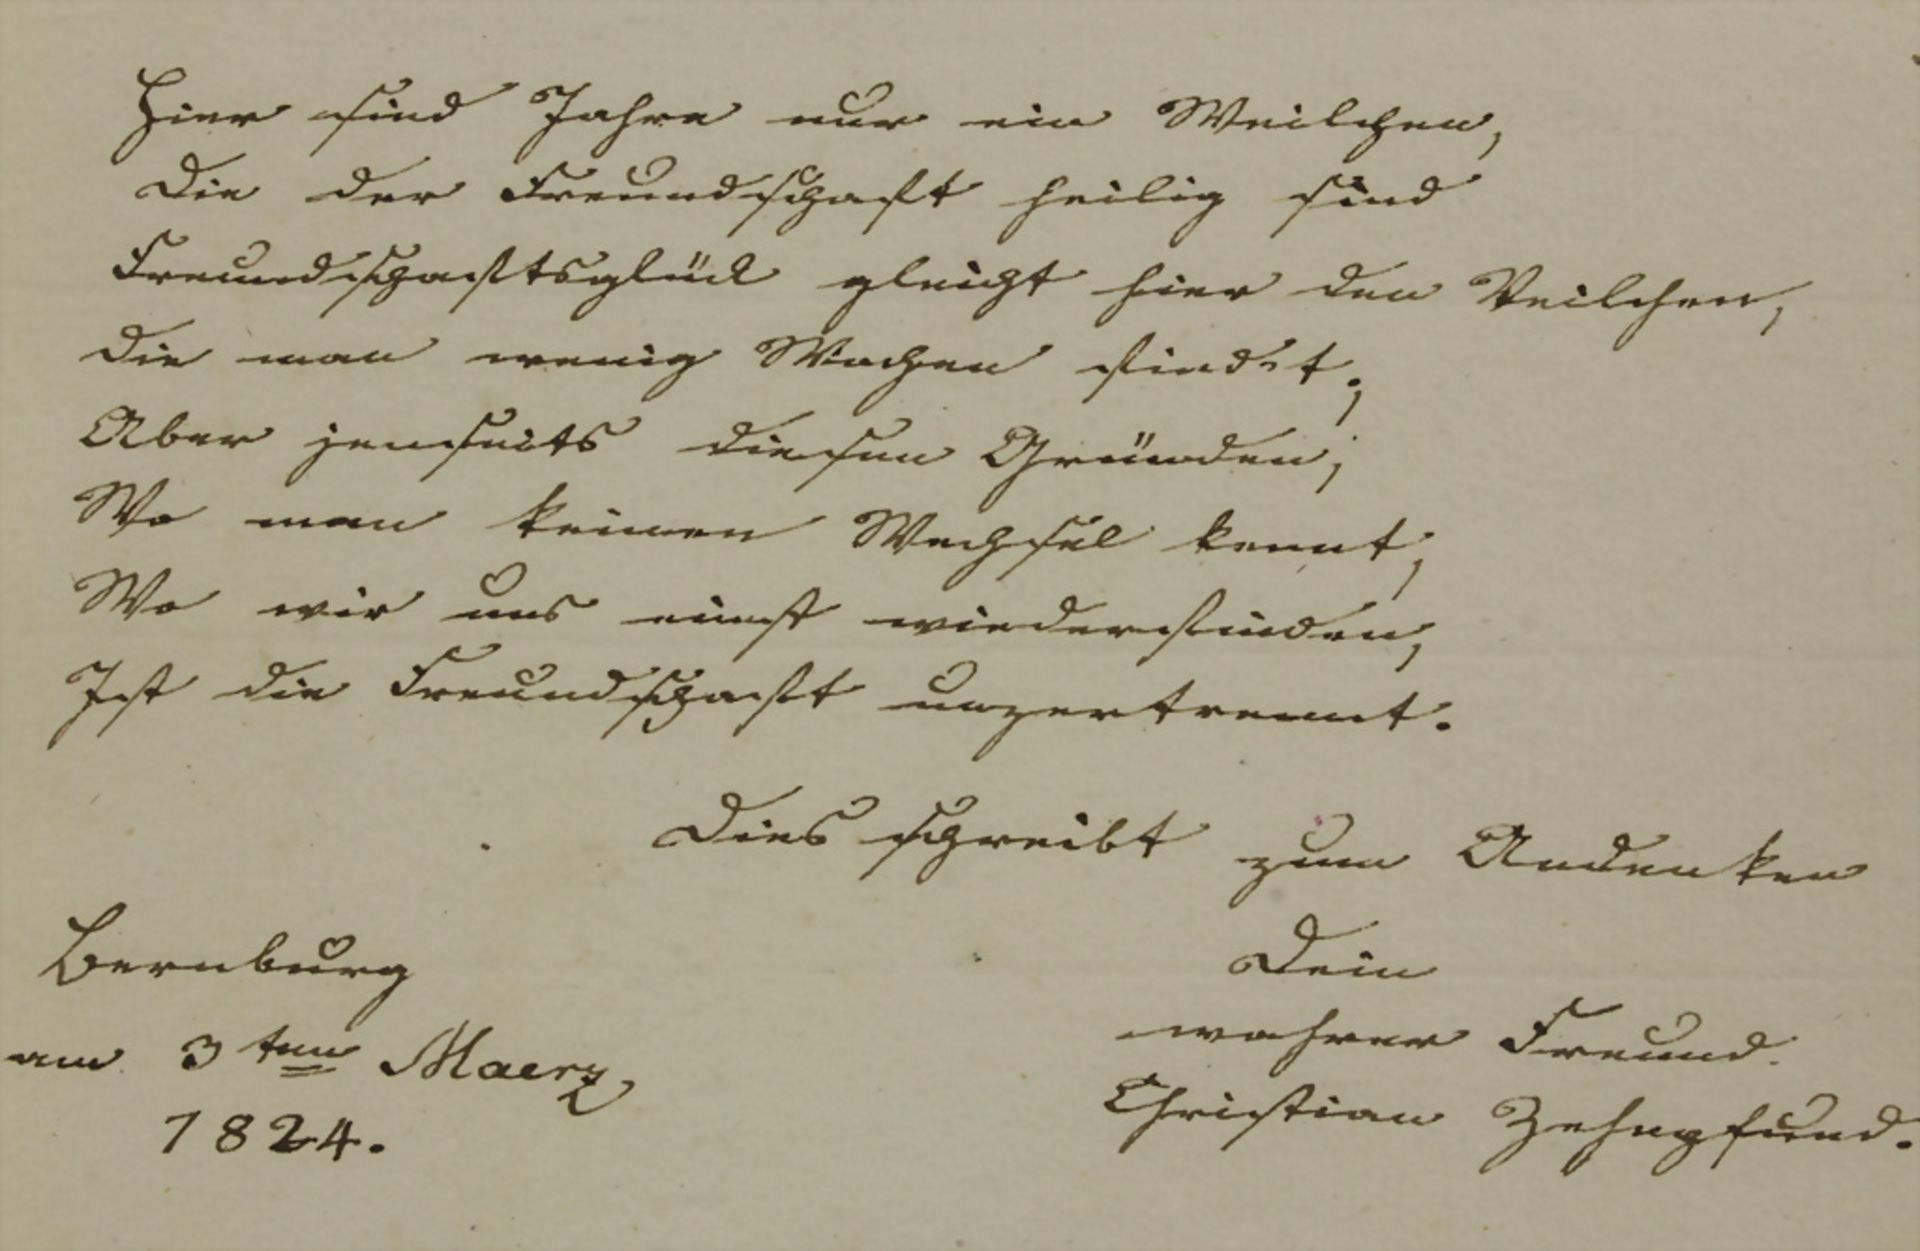 Hier sind Jahre nur ein Weilchen,
Die der Freundschaft heilig sind
Freundschaftsglück gleicht hier den Veilchen,
Die man wenig Wochen findet;
Aber jenseits diesen Gründen,
Wo man keinen Wechsel kennt,
Wo wir uns einst wiederfinden,
Ist die Freundschaft unzertrennt.
Dies schreibt zum Andenken
Bernburg Dein
am 3ten Maerz wahrer Freund.
1824. Christian Zehngfund.